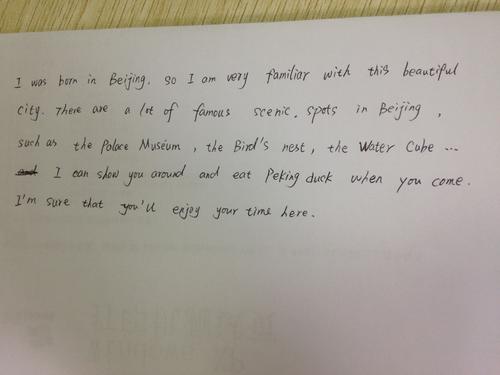 I was born in Beijing. So I am very familiar with this beautiful
city. There are a lot of famous scenic. spots in Beijing ,
such as the Palace Museum , the Bird's nest , the Water Cube ...
I can show you around and eat Peking duck when you come.
I'm sure that you'll enjoy your time here.